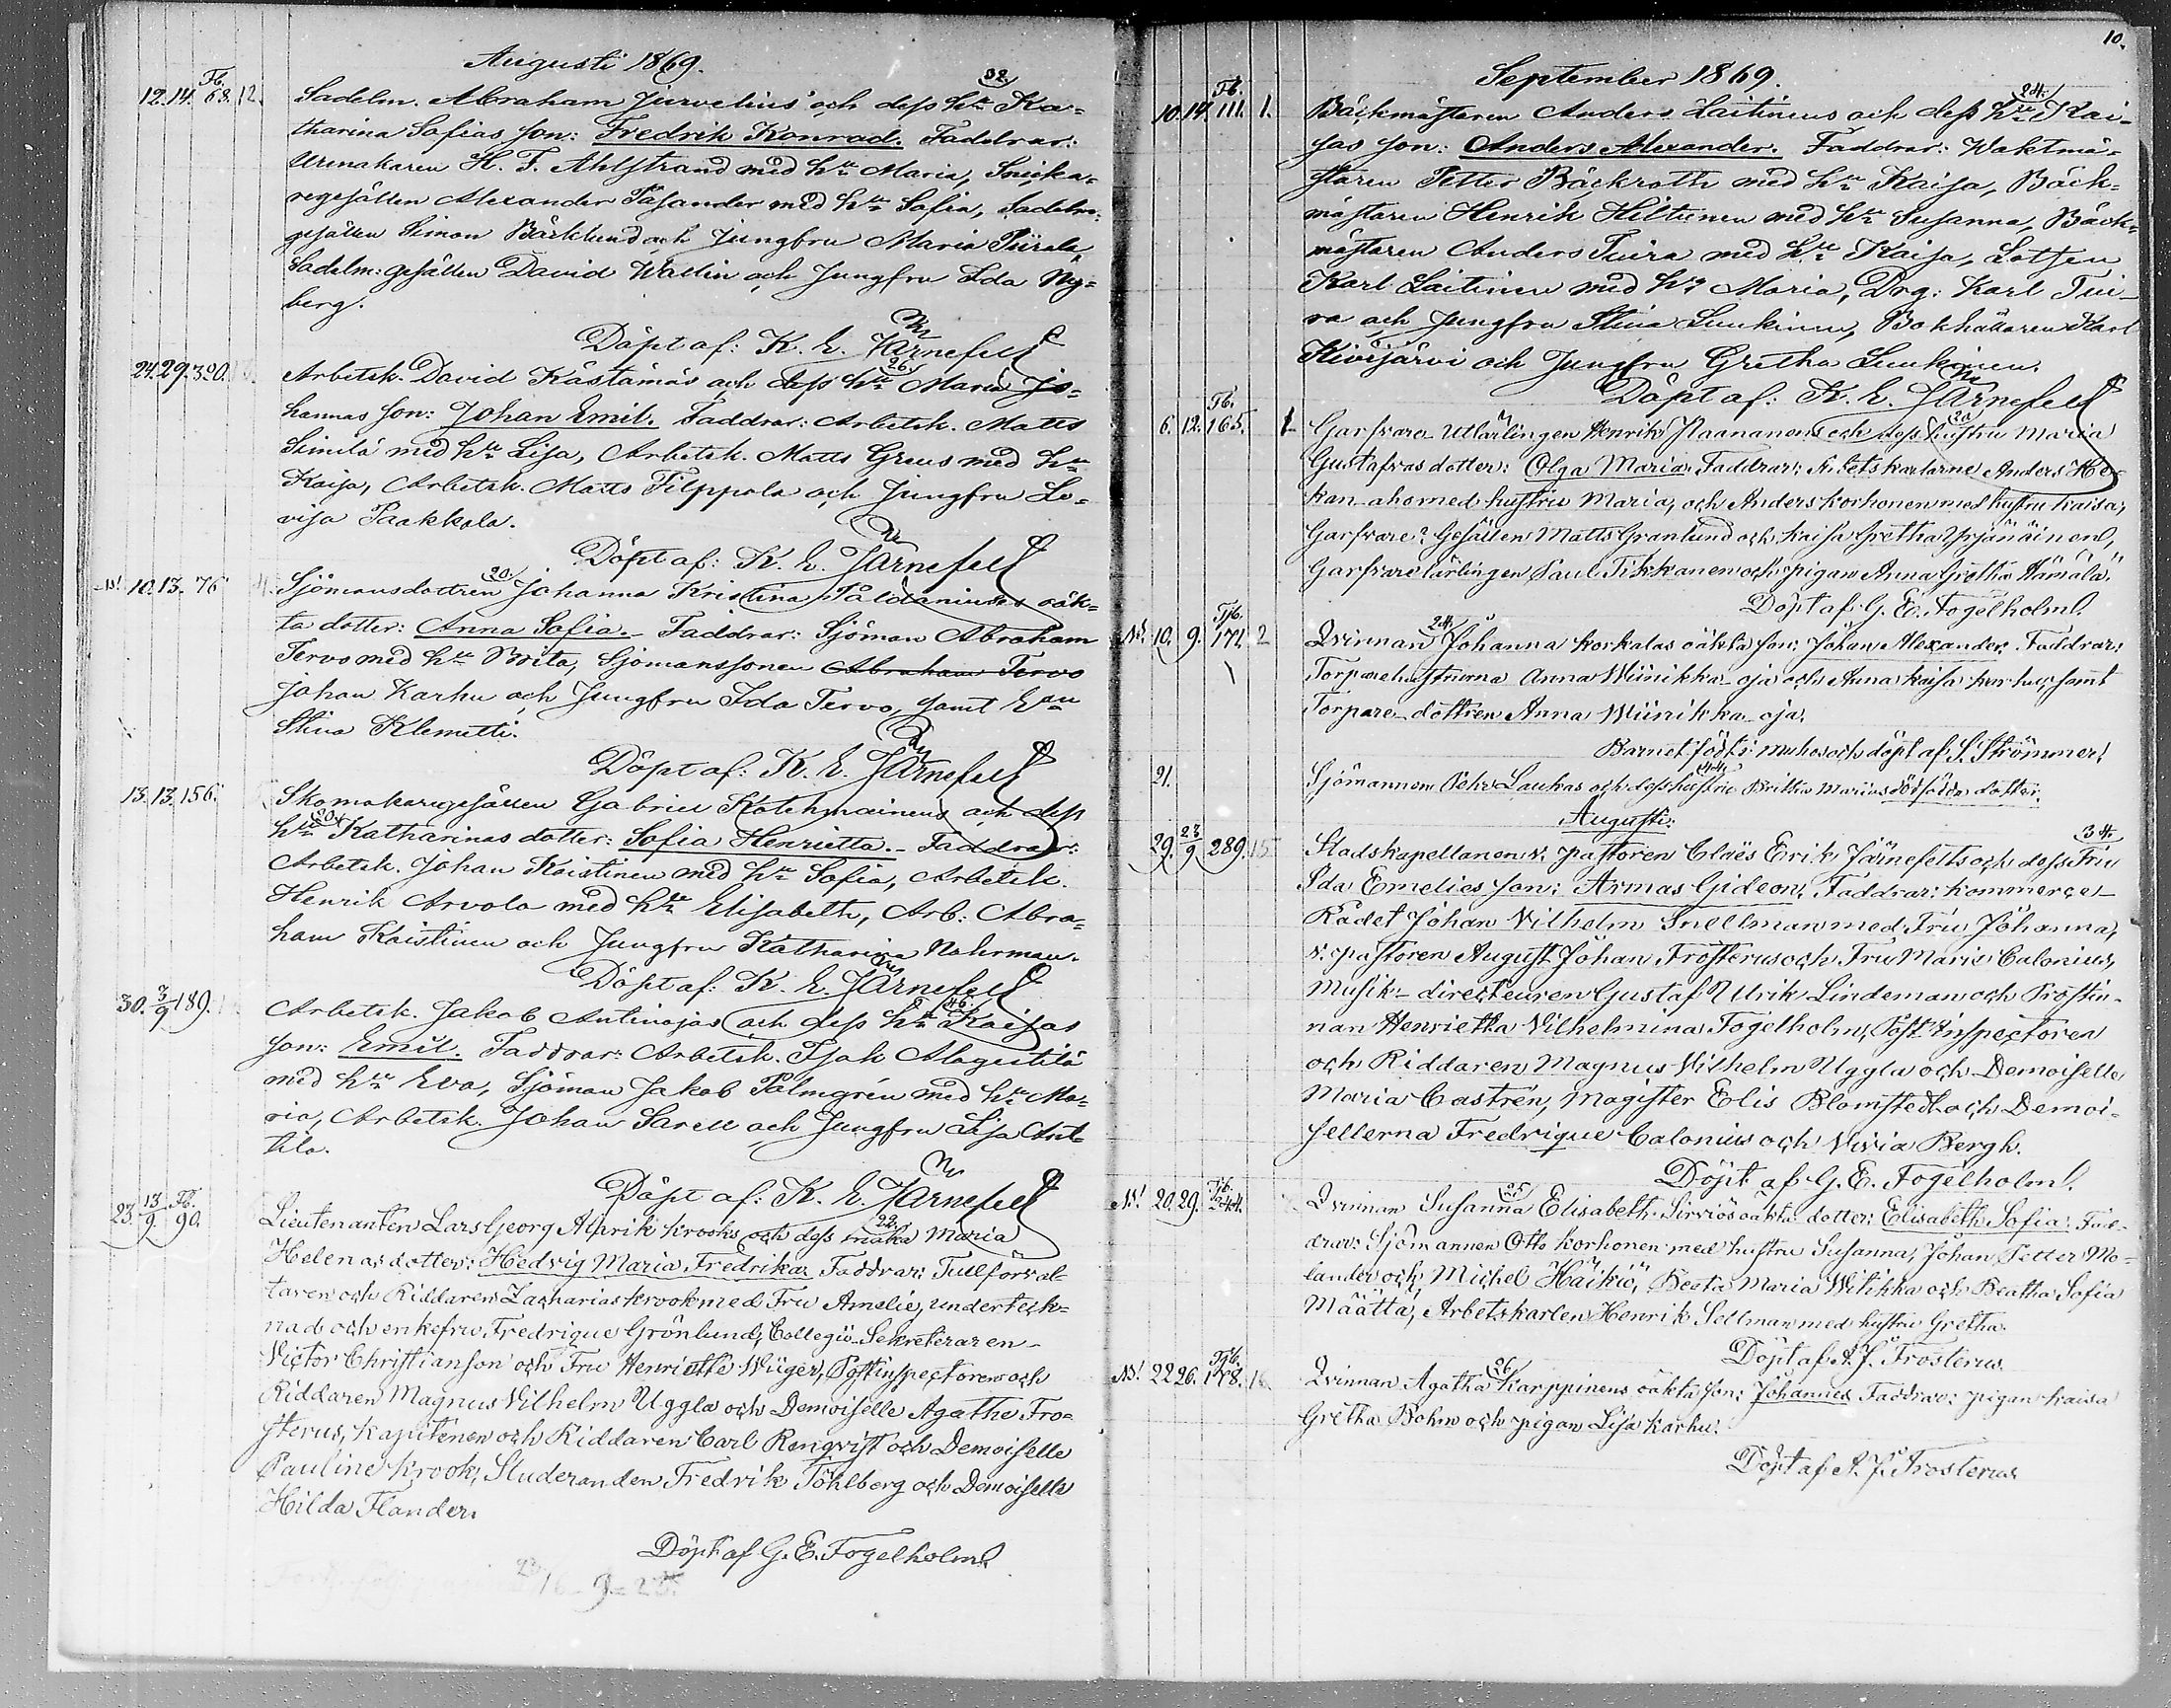 Augusti 1869.
12. 14. Tb. 68. 12.
32
Sadelm. Abraham Jurvelius och dess h:u Ka-
tharina Sofias son: Fredrik Konrad. Faddrar:
Urmakaren H. F. Ahlstrand med h:u Maria, Snicka-
regesällen Alexander Påsander med h:u Safia, Sadelm:
gesällen Simon Bäcklund och Jungfru Maria Piirala,
Sadelm: gesällen David Wallin och Jungfru Ida Ny-
berg.
Döpt af: K. E. Järnefelt
24. 29. 390.
26
Arbetsk. David Kästämäs och dess h:u Maria Jo-
hannas son: Johan Emil. Faddrar: Arbetsk. Matts
Similä med h:u Lisa, Arbetsk. Matts Greus med h:u
Kaisa, Arbetsk. Matts Filppola och Jungfru Lo-
visa Paakkola.
Döpt af: K. E. Järnefelt
N! 10. 13. 76
20
Sjömansdottren Johanna Kristina Påldaniuses oäk-
ta dotter: Anna Sofia. Faddrar: Sjöman Abraham
Tervo med h:u Brita, Sjömanssonen Abraham Tervo
Johan Karhu och Jungfru Ida Tervo, samt E:n
Stina Klemetti.
Döpt af: K. E. Järnefelt
13. 13. 156.
Skomakaregesällen Gabriel Kotehmainens och dess
20
h:u Katharinas dotter: Sofia Henrietta. Faddrar:
Arbetsk. Johan Kaistinen med h:u Sofia, Arbetsk.
Henrik Arvola med h:u Elisabeth, Arb: Abra-
ham Kaistinen och Jungfru Katharina Nahrman.
Döpt af: K. E. Järnefelt
30. 3/9 189.
46.
Arbetsk. Jakob Antinojas och dess h:u Kaisas
son: Emil. Faddrar: Arbetsk. Isak Alagestilä
med h:u Eva, Sjöman Jakob Palmgrén med h:u Ma-
ria, Arbetsk. Johan Sarell och Jungfru Lisa Ant-
tila.
Döpt af: K. E. Järnefelt
23. 13/9 Tb. 90.
22
Lieutenanten Lars Georg Alarik Krooks och dess maka Maria
Helenas dotter: Hedvig Maria Fredrika. Faddrar: Tullförval-
taren och Riddaren Zacharias Krook med Fru Amelie, underteck-
nad och enkefru Fredrique Grönlund, Collegii-Sekreteraren
Victor Christianson och Fru Henriette Wiiger, Postinspectoren och
Riddaren Magnus Vilhelm Uggla och Demoiselle Agathe Fro-
sterus, Kapitenen och Riddaren Carl Renqvist och Demoiselle
Pauline Krook, Studeranden Fredrik Töhlberg och Demoiselle
Hilda Flander.
Döpt af G. E. Fogelholm.
10.
September 1869.
10. 14. Tb. 111. 1.
24.
Bäckmästaren Anders Laitinens och dess h:u Kai-
sas son: Anders Alexander. Faddrar: Waktmä-
staren Petter Bäckroth med h:u Kaisa, Bäck-
mästaren Henrik Hiltunen med h:u Susanna, Bäck-
mästaren Anders Tuira med h:u Kaisa, Lotsen
Karl Laitinen med h:u Maria, Drg: Karl Tui-
ra och Jungfru Stina Lunkinen, Bokhållaren Karl
Kivijärvi och Jungfru Gretha Lunkinen.
Döpt af: K. E. Järnefelt
6. 12. Tb. 165. 1
20
Garfvare-Utlärlingen Henrik Naananens och dess hustru Maria
Gustafvas dotter: Olga Maria. Faddrar: Arbetskarlarne Anders Ho-
kan-aho med hustru Maria, och Anders Korhonen med hustru Kaisa,
Garfvare: Gesällen Matts Granlund och Kaisa Gretha Yrjänäinen,
Garfvarelärlingen Paul Tikkanen och pigan Anna Gretha Hämälä.
Döpt af G. E. Fogelholm.
N! 10. 9. Tjb. 171. 2
24
Qvinnan Johanna Korkalas oäkta son: Johan Alexander. Faddrar:
Torparehustrurna Anna Wiinikka-oja och Anna Kaisa Karhu, samt
Torpare-dottren Anna Wiinikka-oja.
Barnet födt i Muhos och döpt af S. Strömmer.
21.
44
Sjömannen Pehr Laukas och dess hustru Britta Marias dödfödda dotter.
Augusti:
29. 23/9 289. 15
34.
Stadskapellanen v. pastoren Claës Erik Järnefelts och dess Fru
Ida Emelies son: Armas Gideon. Faddrar: Kommerce-
Rådet Johan Vilhelm Snellman med Fru Johanna,
v. pastoren August Johan Frosterus och Fru Marie Calonius,
Musik-directeuren Gustaf Ulrik Lindeman och Prostin-
nan Henrietta Vilhelmina Fogelholm, Post Inspectoren
och Riddaren Magnus Vilhelm Uggla och Demoiselle
Maria Castrén, Magister Elis Blomstedt och Demoi-
sellerna Fredrique Calonius och Vivia Bergh.
Döpt af G. E. Fogelholm.
N! 20. 29. Tjb. 244.
25
Qvinnan Susanna Elisabeth Sirviös oäkta dotter: Elisabeth Sofia. Fad-
drar: Sjömannen Otto Korhonen med hustru Susanna, Johan Petter Mo-
lander och Michel Häikiö, Beata Maria Witikka och Beatha Sofia
Määttä, Arbetskarlen Henrik Sellman med hustru Gretha.
Döpt af A. J. Frosterus.
N! 22 26. Tjb. 178. 16
26
Qvinnan Agatha Karppinens oäkta son: Johannes. Faddrar: pigan Kaisa
Gretha Bohm och pigan Lisa Karhu.
Döpt af A. J. Frosterus